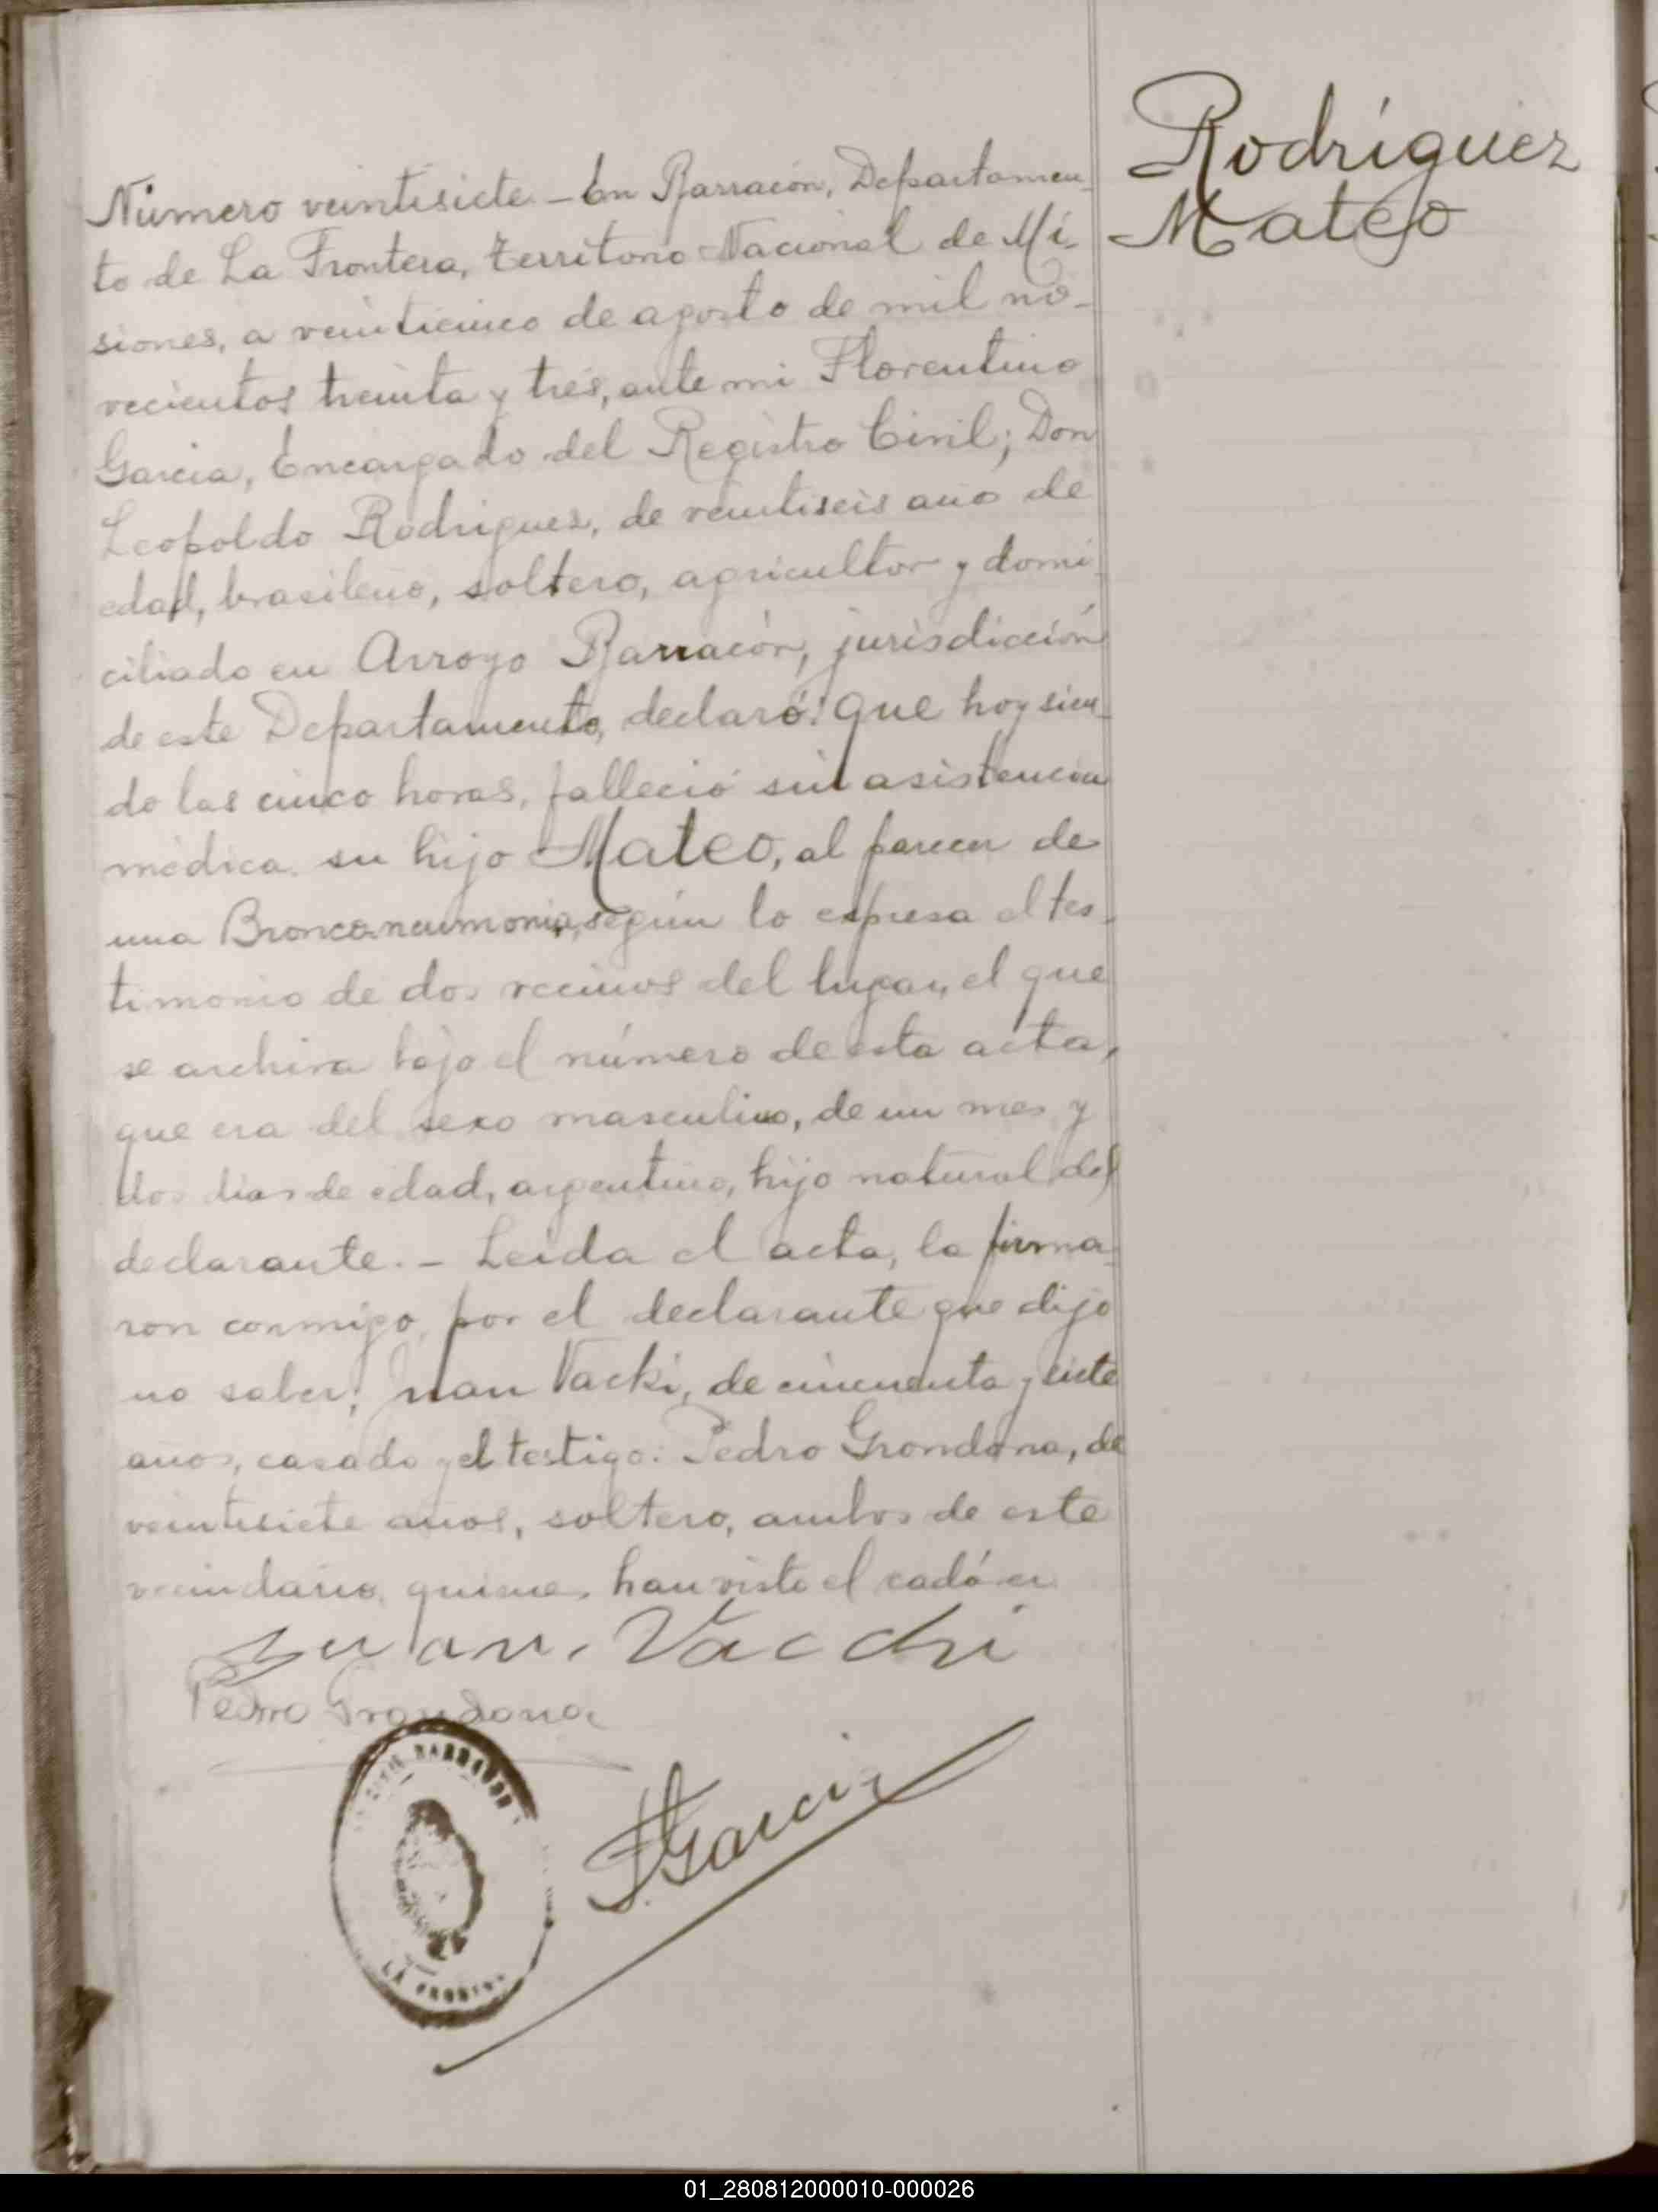 Rodríguez
Mateo
Número veintisiete - En Barracón, Departamen-
to de La Frontera, territorio Nacional de Mi-
siones, a veinticinco de agosto de mil no-
vecientos treinta y tres, ante mi Florentino
Garcia, Encargado del Registro Civil; Don
Leopoldo Rodriguez, de veintiseis año de
edad, brasileño, soltero, agricultor y domi-
ciliado en Arroyo Barracón, jurisdicción
de este Departamento, declaró: que hoy sien-
do las cinco horas, falleció sin asistencia
médica su hijo Mateo, al parecer de
una Bronconeumonia, según lo espresa el tes-
timonio de dos vecinos del lugar, el que
se archiva bajo el número de esta acta,
que era del sexo masculino, de un mes y
dos dias de edad, argentino, hijo natural del
declarante. - Leida el acta, la firma-
ron conmigo, por el declarante que dijo
no saber; Juan Vacki, de cincuenta y siete
años, casado y el testigo: Pedro Grondona, de
veintisiete años, soltero, ambos de este
vecindario, quienes han visto el cadáver
Juan. Vacchi
Pedro Grondona
BARRACON
F. Garcia
LA FRONTERA
01_280812000010-000026